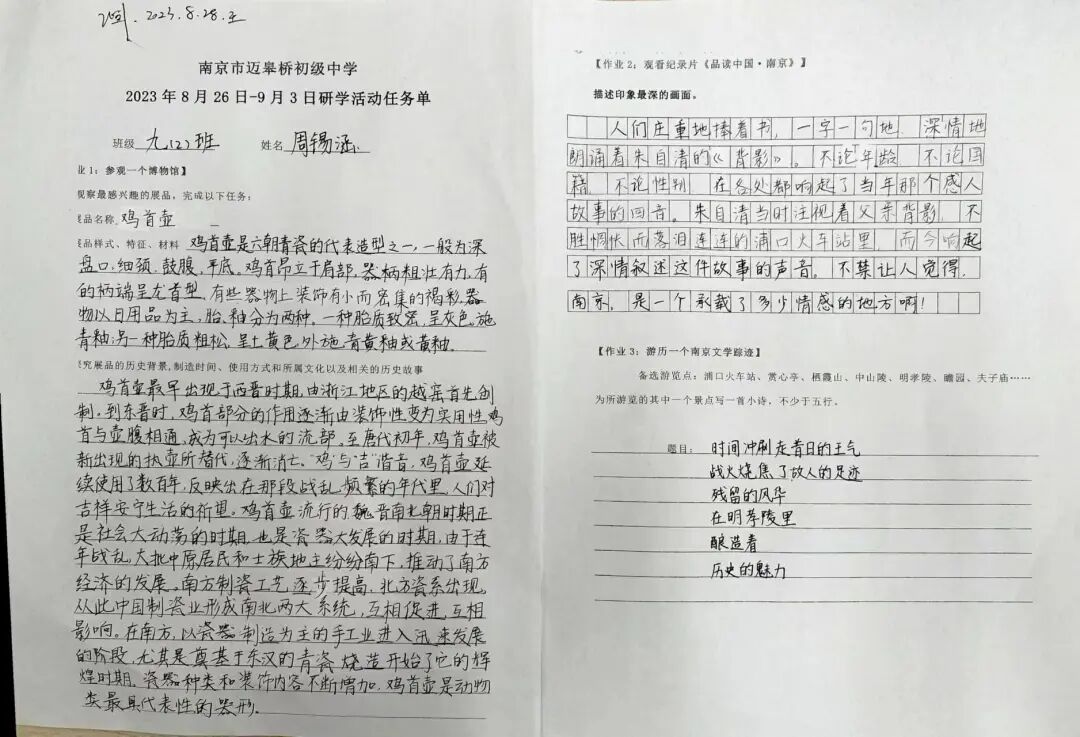 2023.8.28.
南京市迈皋桥初级中学
2023年8月26日-9月3日研学活动任务单
班级 九(2)班 姓名 周锡涵
业1：参观一个博物馆】
观察最感兴趣的展品，完成以下任务：
展品名称 鸡首壶
展品样式、特征、材料 鸡首壶是六朝青瓷的代表造型之一，一般为深
盘口，细颈，鼓腹，平底。鸡首昂立于肩部，器柄粗壮有力，有
的柄端呈龙首型，有些器物上装饰有小而密集的褐彩。器
物以日用品为主，胎、釉分为两种。一种胎质致密，呈灰色，施
青釉；另一种胎质粗松，呈土黄色，外施青黄釉或黄釉。
究展品的历史背景,制造时间、使用方式和所属文化以及相关的历史故事
鸡首壶最早出现于西晋时期，由浙江地区的越窑首先创
制。到东晋时，鸡首部分的作用逐渐由装饰性变为实用性，鸡
首与壶腹相通，成为可以出水的流部。至唐代初年，鸡首壶被
新出现的执壶所替代，逐渐消亡。“鸡”与“吉”谐音，鸡首壶延
续使用了数百年，反映出在那段战乱频繁的年代里，人们对
吉祥安宁生活的祈望。鸡首壶流行的魏晋南北朝时期正
是社会大动荡的时期，也是瓷器大发展的时期，由于连
年战乱，大批中原居民和士族地主纷纷南下，推动了南方
经济的发展。南方制瓷工艺逐步提高，北方瓷系出现，
从此中国制瓷业形成南北两大系统，互相促进，互相
影响。在南方，以瓷器制造为主的手工业进入迅速发展
的阶段，尤其是奠基于东汉的青瓷烧造开始了它的辉
煌时期，瓷器种类和装饰内容不断增加，鸡首壶是动物
类最具代表性的器形。
【作业2：观看纪录片《品读中国·南京》】
描述印象最深的画面。
人们庄重地捧着书，一字一句地，深情地
朗诵着朱自清的《背影》。不论年龄，不论国
籍，不论性别，在各处都响起了当年那个感人
故事的回音。朱自清当时注视着父亲背影，不
胜惆怅而落泪连连的浦口火车站里，而今响起
了深情叙述这件故事的声音。不禁让人觉得，
南京，是一个承载了多少情感的地方啊！
【作业3：游历一个南京文学踪迹】
备选游览点：浦口火车站、赏心亭、栖霞山、中山陵、明孝陵、瞻园、夫子庙……
为所游览的其中一个景点写一首小诗，不少于五行。
题目： 时间冲刷走昔日的王气
战火烧焦了故人的足迹
残留的风华
在明孝陵里
酿造着
历史的魅力